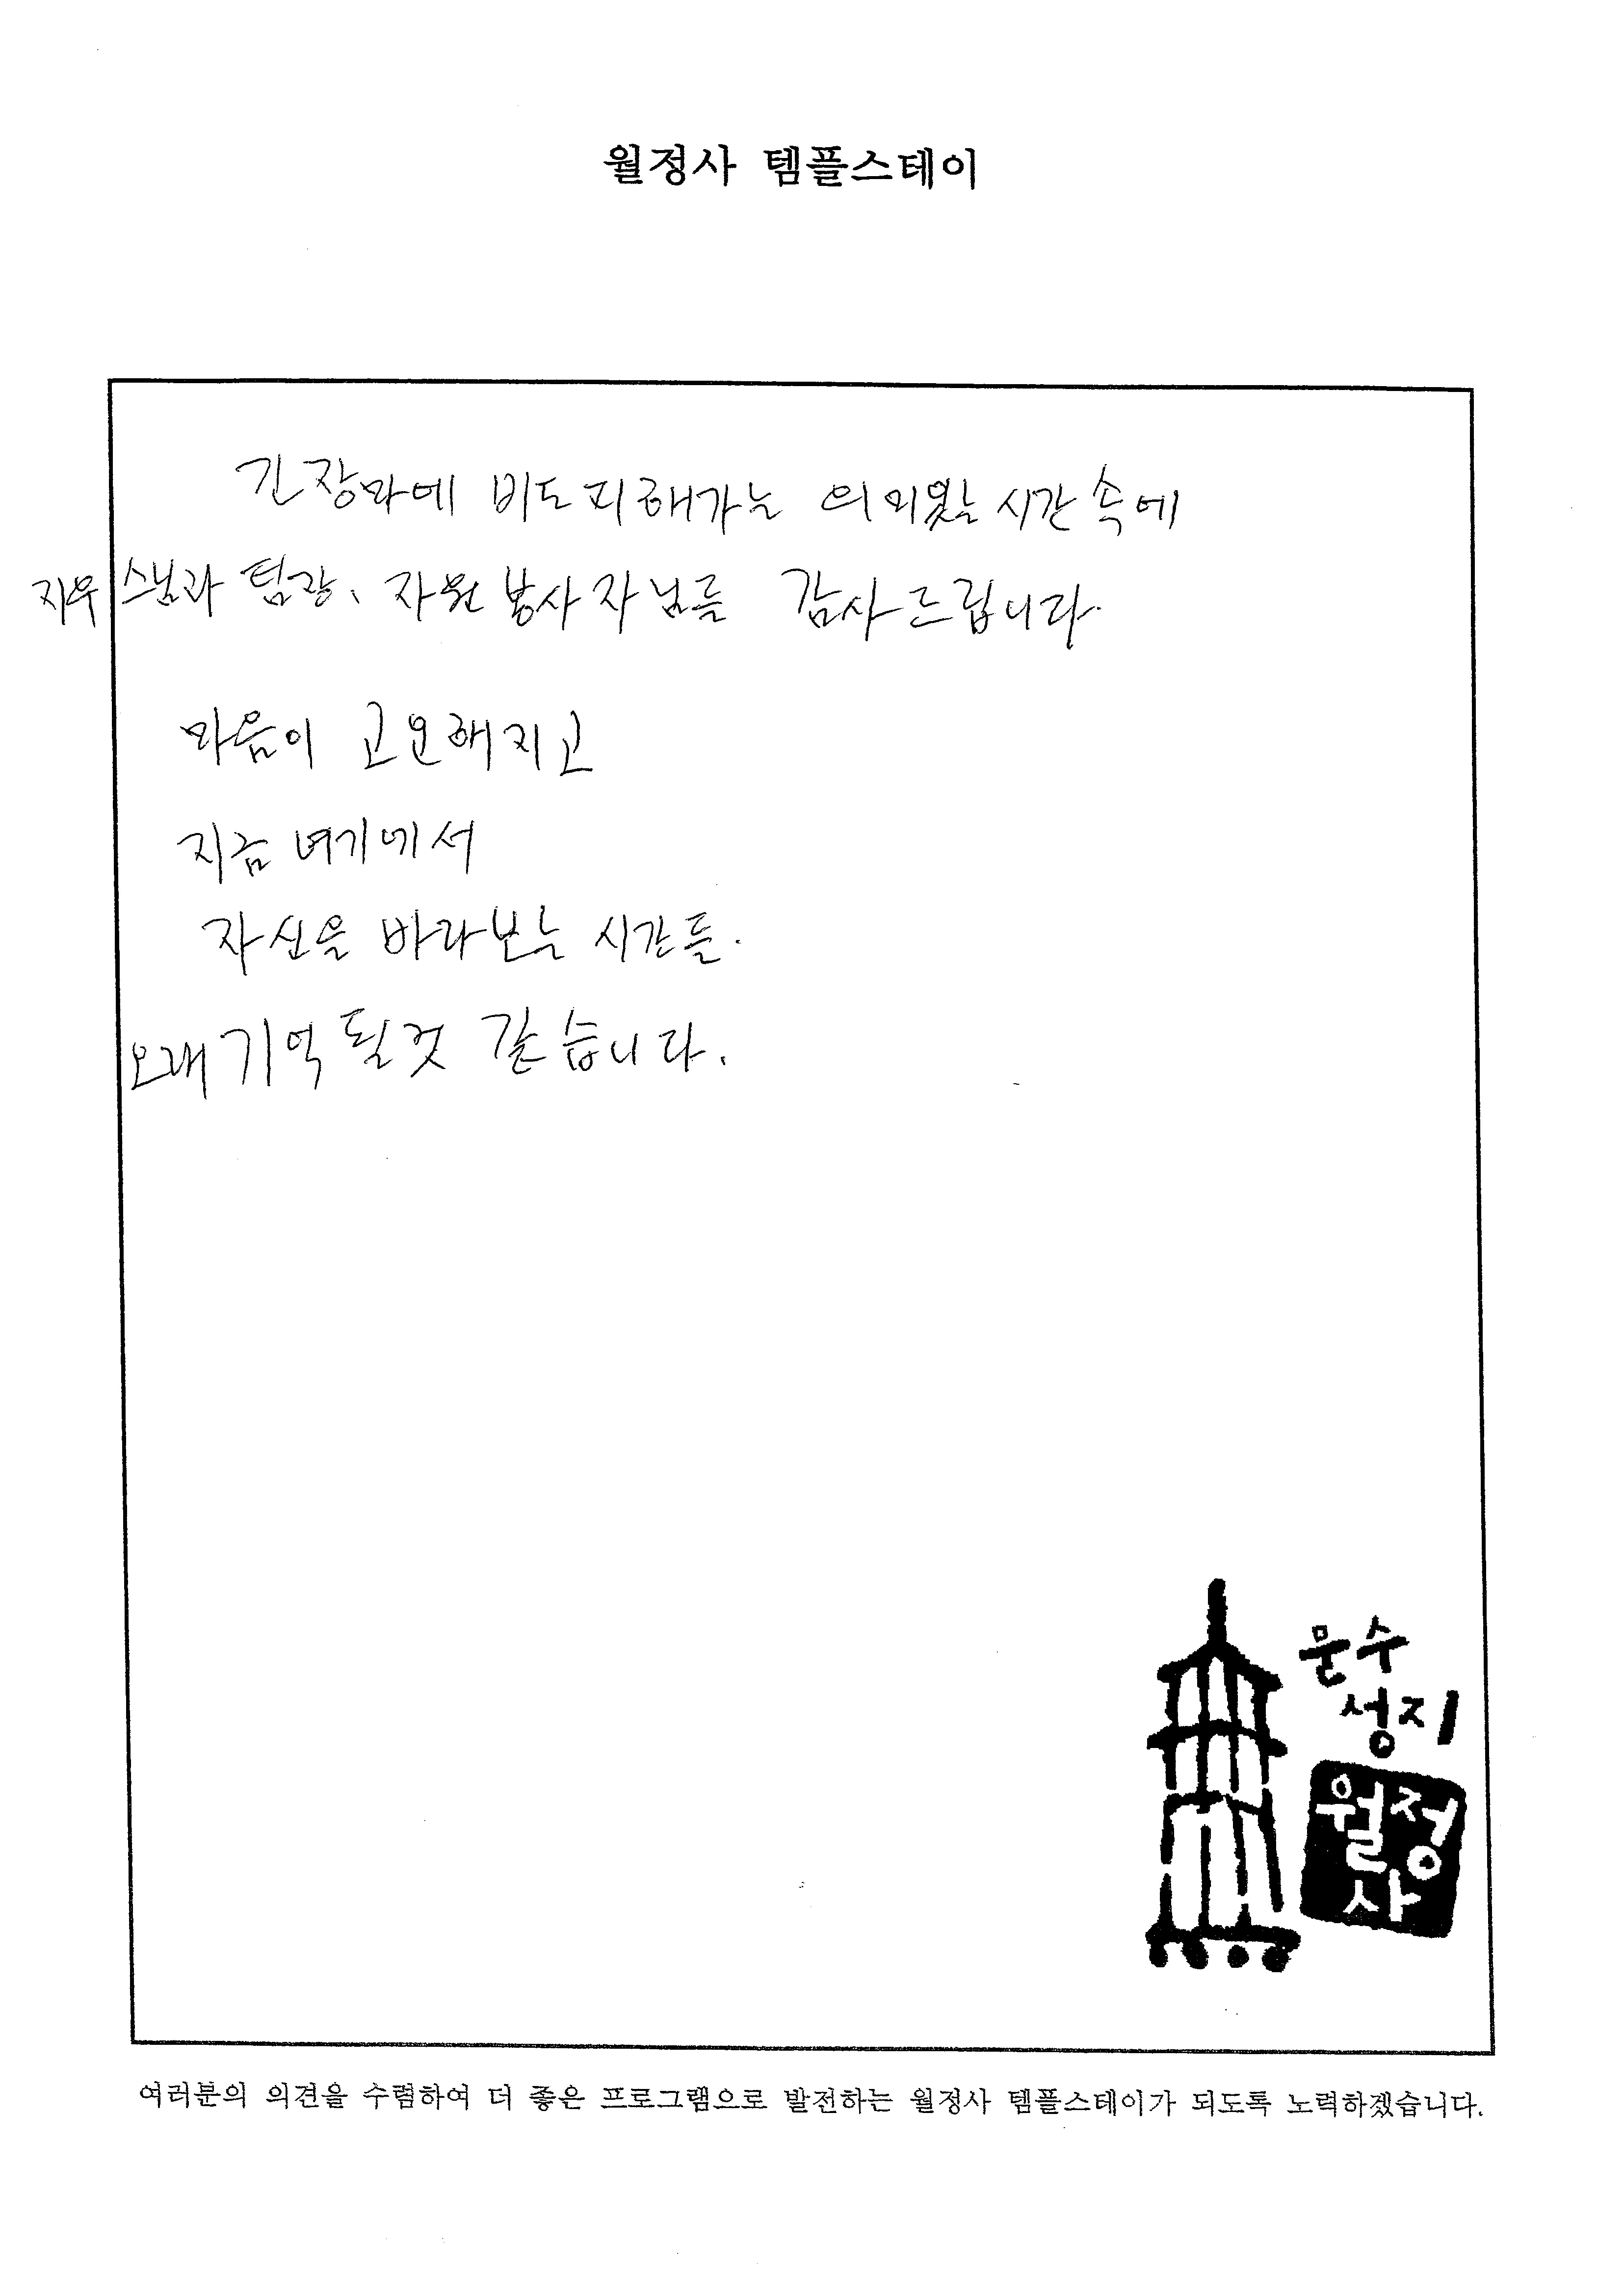 월정사 템플스테이
긴장마에 비도피해가는 의미있는 시간속에
지우 스님과 팀장, 자원봉사자님들 감사드립니다.
마음이 고요해지고
지금 여기에서
자신을 바라보는 시간들.
오래 기억될것 같습니다.
문수
성지
월정
사
여러분의 의견을 수렴하여 더 좋은 프로그램으로 발전하는 월정사 템플스테이가 되도록 노력하겠습니다.